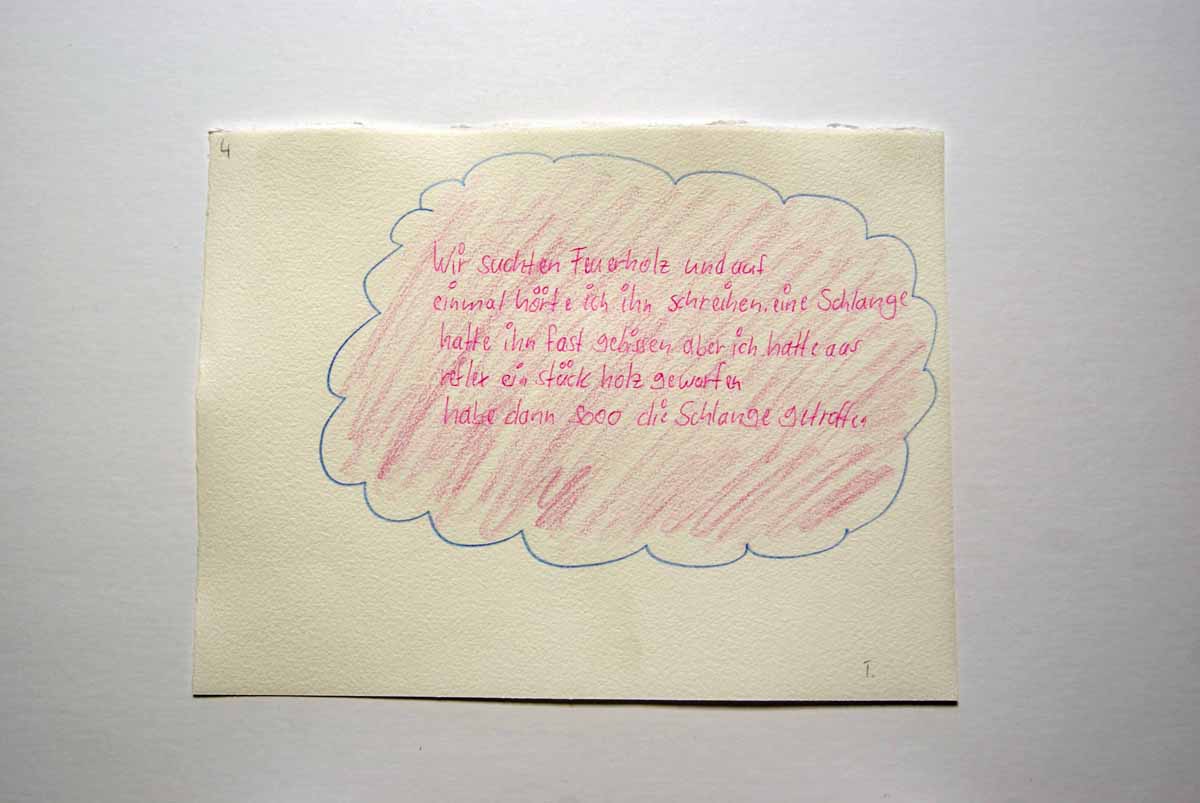 4
Wir suchten Feuerholz und auf
einmal hörte ich ihn schreihen. eine Schlange
hatte ihn fast gebissen aber ich hatte aus
reflex ein stück holz geworfen
habe dann sooo die Schlange getroffen
T.